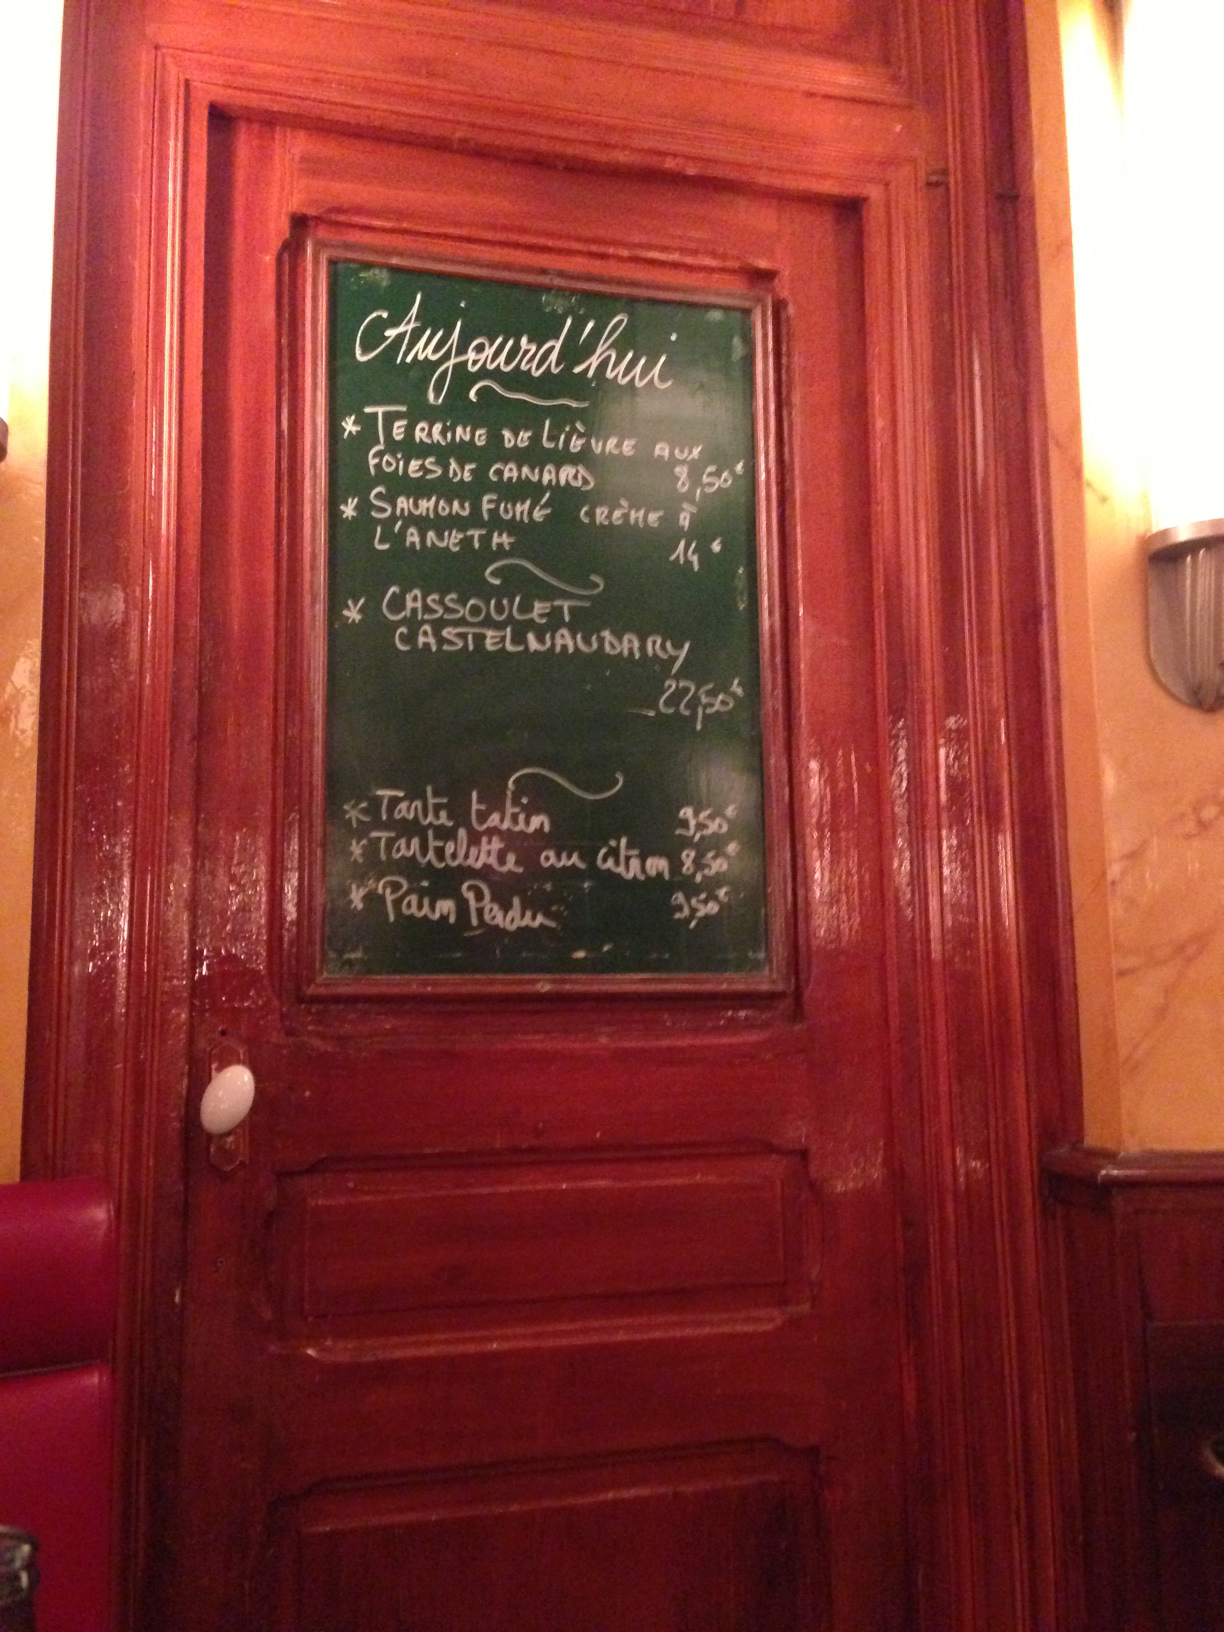 Aujourd'hui
* TERRINE DE LIÈVRE AUX
FOIES DE CANARD 8,50€
* SAUMON FUMÉ CRÈME À
L'ANETH 14€
* CASSOULET
CASTELNAUDARY
22,50€
* Tarte tatin 9,50€
* Tartelette au citron 8,50€
* Pain Perdu 9,50€